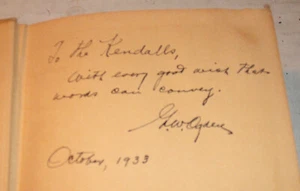 To the Kendalls,
With every good wish that
words can convey.
G.W. Ogden
October, 1933